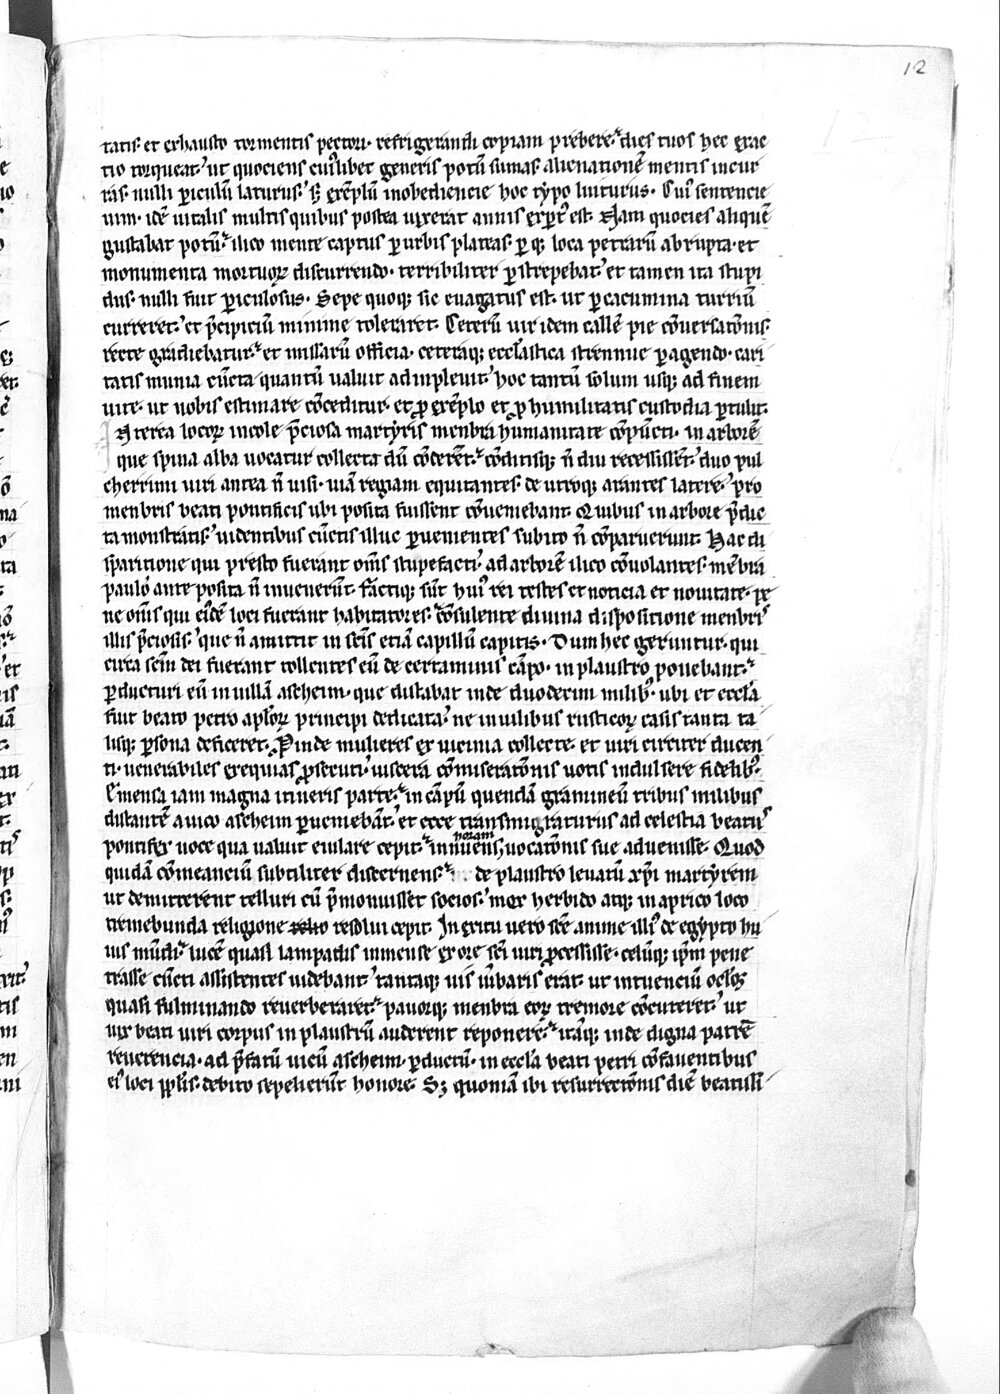 12
tatis· et exhausto tormentis pectori· refrigerandi copiam prebere· dies tuos hec exac
tio torqueat· ut quociens cuiꝰlibet generis potū sumas· alienationē mentis incur
ras· nulli ꝑiculū laturus· s; exēplū inobediencie hoc typo luiturus· Cuiꝰ sentencie
uim· idē uitalis multis quibus postea uixerat annis exꝑtꝰ est· Nam quocies aliquē
gustabat potū· ilico mente captus ꝑ urbis plateas· ꝑ q; loca petrarū abrupta· et
monumenta mortuoꝝ discurrendo· terribiliter ꝑstrepebat· et tamen ita stupi
dus· nulli fuit ꝑiculosus· Sepe quoq; sic euagatus est· ut ꝑ cacumina turriū
curreret· et p̄cipiciū minime toleraret· Ceterū uir idem callē pie cōuersatōnis
recte gradiebatur· et missarū officia· ceteraq; ecclastica strennue ꝑagendo· cari
tatis munia cūcta quantū ualuit adinpleuit· hoc tantū solum usq; ad finem
uite· ut nobis estimare cōceditur· et ꝓ exēplo et ꝓ humilitatis custodia ꝑtulit·
Nterea locoꝝ incole p̄ciosa martyris menbra humanitate cōpūcti· in arborē
que spina alba uocatur collecta dū cōderēt· cōditisq; n̄ diu recessissēt· duo pul
cherrimi uiri antea n̄ uisi· uiā regiam equitantes· de utroq; astantes latere· pro
menbris beati pontificis ubi posita fuissent cōueniebant· Quibus in arbore p̄dic
ta monstratis· uidentibus cūctis illuc ꝑuenientes subito n̄ cōparuerunt· Hac di
sparitione qui presto fuerant om̄s stupefacti· ad arborē ilico cōuolantes· mēbra
paulo ante posita n̄ inuenerūt· Factiq; sūt huiꝰ rei testes et noticia et nouitate· pe
ne om̄is qui eidē loci fuerant habitatores· cōsulente diuina dispositione menbriˢ
illis p̄ciosis· que n̄ amittit in scīs etiā capillū capitis· Dum hec geruntur· qui
circa scīm dei fuerant tollentes eū de certaminis cāpo· in plaustro ponebant·
ꝑducturi eū in uillā ascheim· que distabat inde duodecim milibꝰ· ubi et eccla
fuit beato petro aplōꝝ principi dedicata· ne in uilibus rusticoꝝ casis tanta ta
lisq; ꝑsona deficeret· Proinde mulieres ex uicinia collecte· et uiri circiter ducen
ti· uenerabiles exequias ꝓsecuti· uiscera cōmiseratōnis uotis indulsere fidelibꝰ·
Emensa iam magna itineris parte· in cāpū quendā gramineū tribus milibus
distantē a uico ascheim ꝑueniebāt· et ecce transmigraturus ad celestia beatus
pontifex uoce qua ualuit eiulare cepit· innuens horam uocatōnis sue aduenisse· Quod
quidā cōmeanciū subtiliter discernens· de plaustro leuatū xp̄i martyrem
ut demitterent telluri cū p̄monuisset socios· mox herbido atq; in aprico loco
tremebunda religione resolui cepit· In exitu uero scē anime illiꝰ de egypto hu
ius mūdi· lucē quasi lampadis inmense ex ore scī uiri ꝓcessisse· celūq; ip̄m pene
trasse cūcti assistentes uidebant· tantaq; uis iubaris erat· ut intuenciū oclōs
quasi fulminando reuerberaret· pauorq; menbra eoꝝ tremore cōcuteret· ut
uix beati uiri corpus in plaustrū auderent reponere· itaq; inde digna patrē
reuerencia· ad p̄fatū uicū ascheim· ꝑductū· in eccla beati petri cōfauentibus
eiꝰ loci pplis· debito sepelierūt honore· S; quoniā ibi resurrectōnis diē beatissi